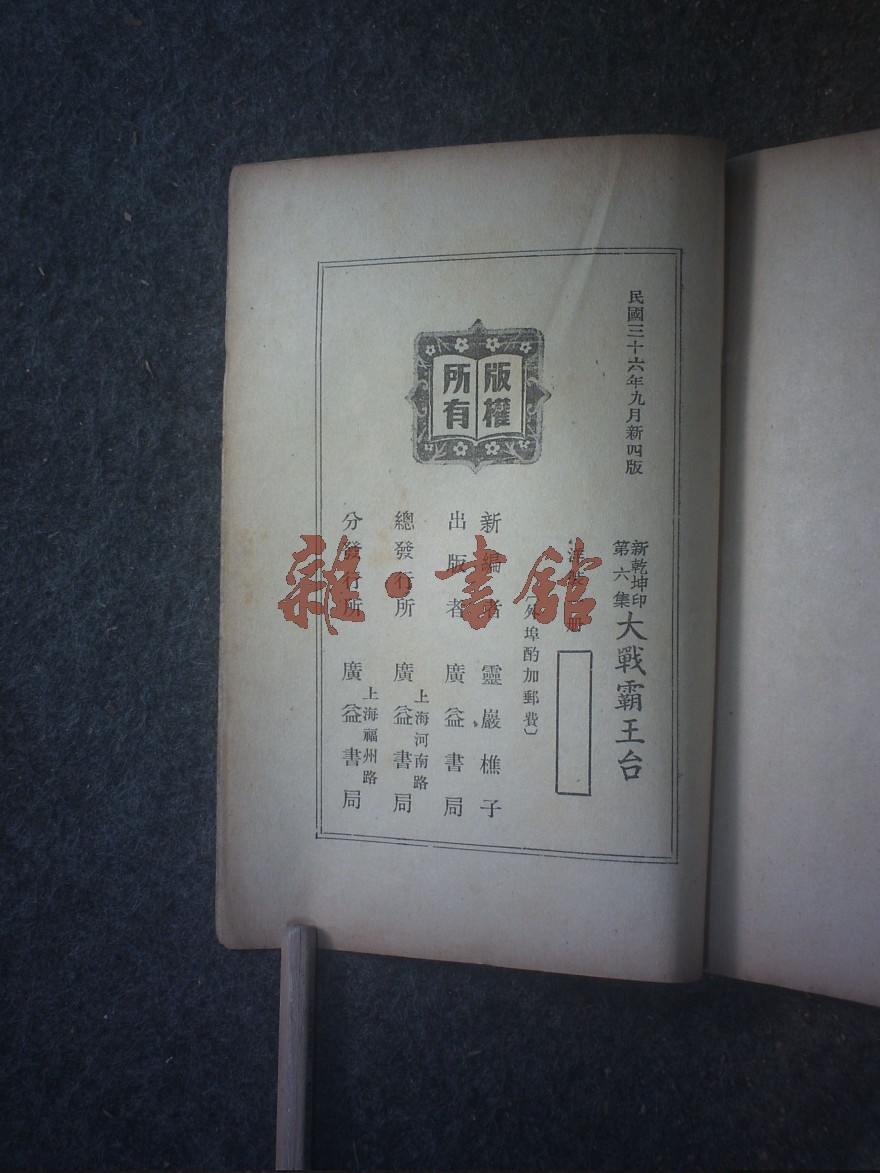 民國三十六年九月新四版
新乾坤印
第六集
大戰霸王台
洋裝一册
外埠酌加郵費〕
版權
所有
新編者 靈巖樵子
出版者 廣益書局
上海河南路
總發行所 廣益書局
上海福州路
分發行所 廣益書局
雜·書館